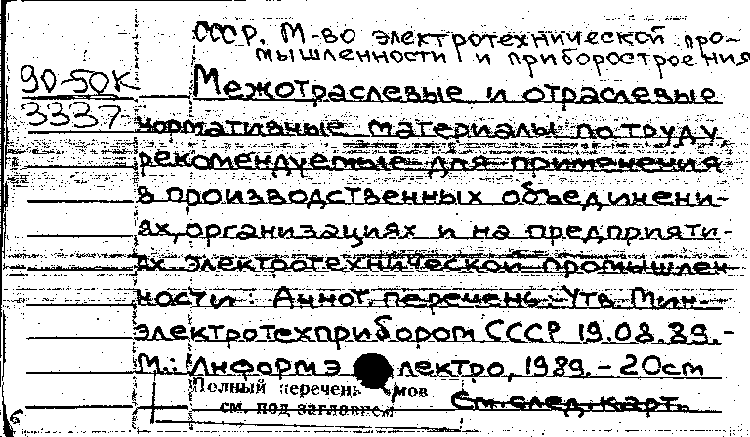 СССР. М-во электротехнической про-
мышленности и приборостроения
90-50К Межотраслевые и отраслевые
3337 нормативные материалы по труду,
рекомендуемые для применения
в производственных объединени-
ях, организациях и на предприяти-
ях электротехнической промышлен
ности: Аннот. перечень: Утв. Мин-
электротехприбором СССР 19.08.89.-
М.: Информэлектро, 1989.- 20см
Полный перечень
см. под заглавием См. след. карт.